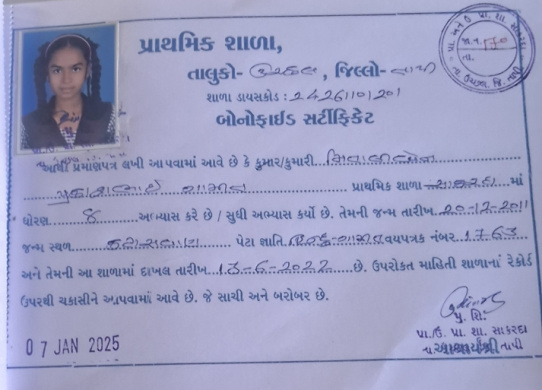 પ્રાથમિક શાળા,
તાલુકો- ઉચ્છલ, જિલ્લો- તાપી
શાળા ડાયસકોડ : 24261101201
બોનોફાઈડ સર્ટીફિકેટ
આથી પ્રમાણપત્ર લખી આપવામાં આવે છે કે કુમાર/કુમારી
પ્રાથમિક શાળા સાકરદા માં
ધોરણ 8 અભ્યાસ કરે છે / સુધી અભ્યાસ કર્યો છે. તેમની જન્મ તારીખ 20-12-2011
જન્મ સ્થળ પેટા જ્ઞાતિ હિન્દુ-ગામીત વયપત્રક નંબર 1763
અને તેમની આ શાળામાં દાખલ તારીખ 13-6-2022 છે. ઉપરોકત માહિતી શાળાનાં રેકોર્ડ
ઉપરથી ચકાસીને આપવામાં આવે છે. જે સાચી અને બરોબર છે.
07 JAN 2025
પ્રુ. શિ.
પ્રા./ઉ. પ્રા. શા. સાકરદા
આચાર્યશ્રી તાપી